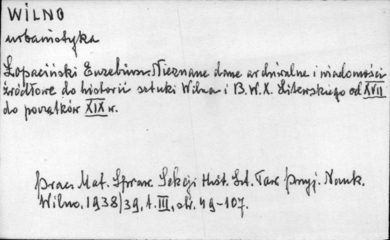 WILNO
urbanistyka
Łopaciński Euzebiusz Nieznane dane archiwalne i wiadomości
źródłowe do historii sztuki Wilna i B.W.X. Litewskiego od XVII
do początków XIX w.
Prace Mat. Spraw. Sekcji Hist. Szt. Tow. Przyj. Nauk.
Wilno, 1938/39, t. III, str. 49-107.